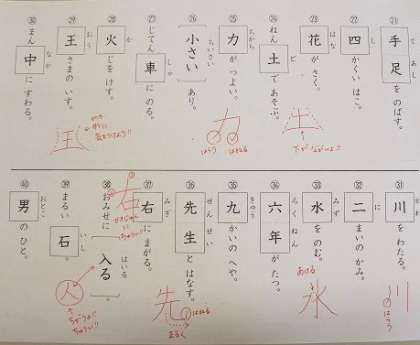 ㉑ 手足をのばす。
てあし
㉒ 四かくいはこ。
し
㉓ 花がさく。
はな
㉔ ねん土であそぶ。
ど
土
下がながいよ
㉕ 力がつよい。
ちから
力
はらう
はねる
㉖ 小さいあり。
ちいさい
㉗ じてん車にのる。
しゃ
㉘ 火じをけす。
か
㉙ 王さまのいす。
おう
王
㉚ まん中にすわる。
なか
㉛ 川をわたる。
かわ
川
はらう
㉜ 二まいのかみ。
に
㉝ 水をのむ。
みず
あける
水
㉞ 六年がたつ。
ろくねん
㉟ 九かいのへや。
きゅう
㊱ 先生とはなす。
せんせい
先
はねる
まるく
㊲ 右にまがる。
みぎ
右
㊳ おみせに入る。
はいる
入
㊴ まるい石。
いし
㊵ 男のひと。
おとこ